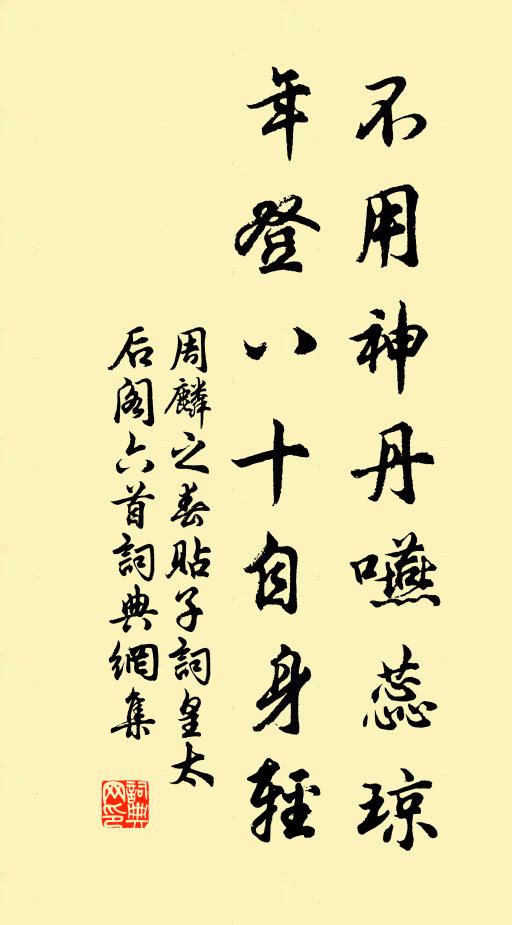 不用神丹嚥蕊琼
年登八十自身輕
周麟之春貼子詞皇太
后阁六首詞典網集
詞典网印